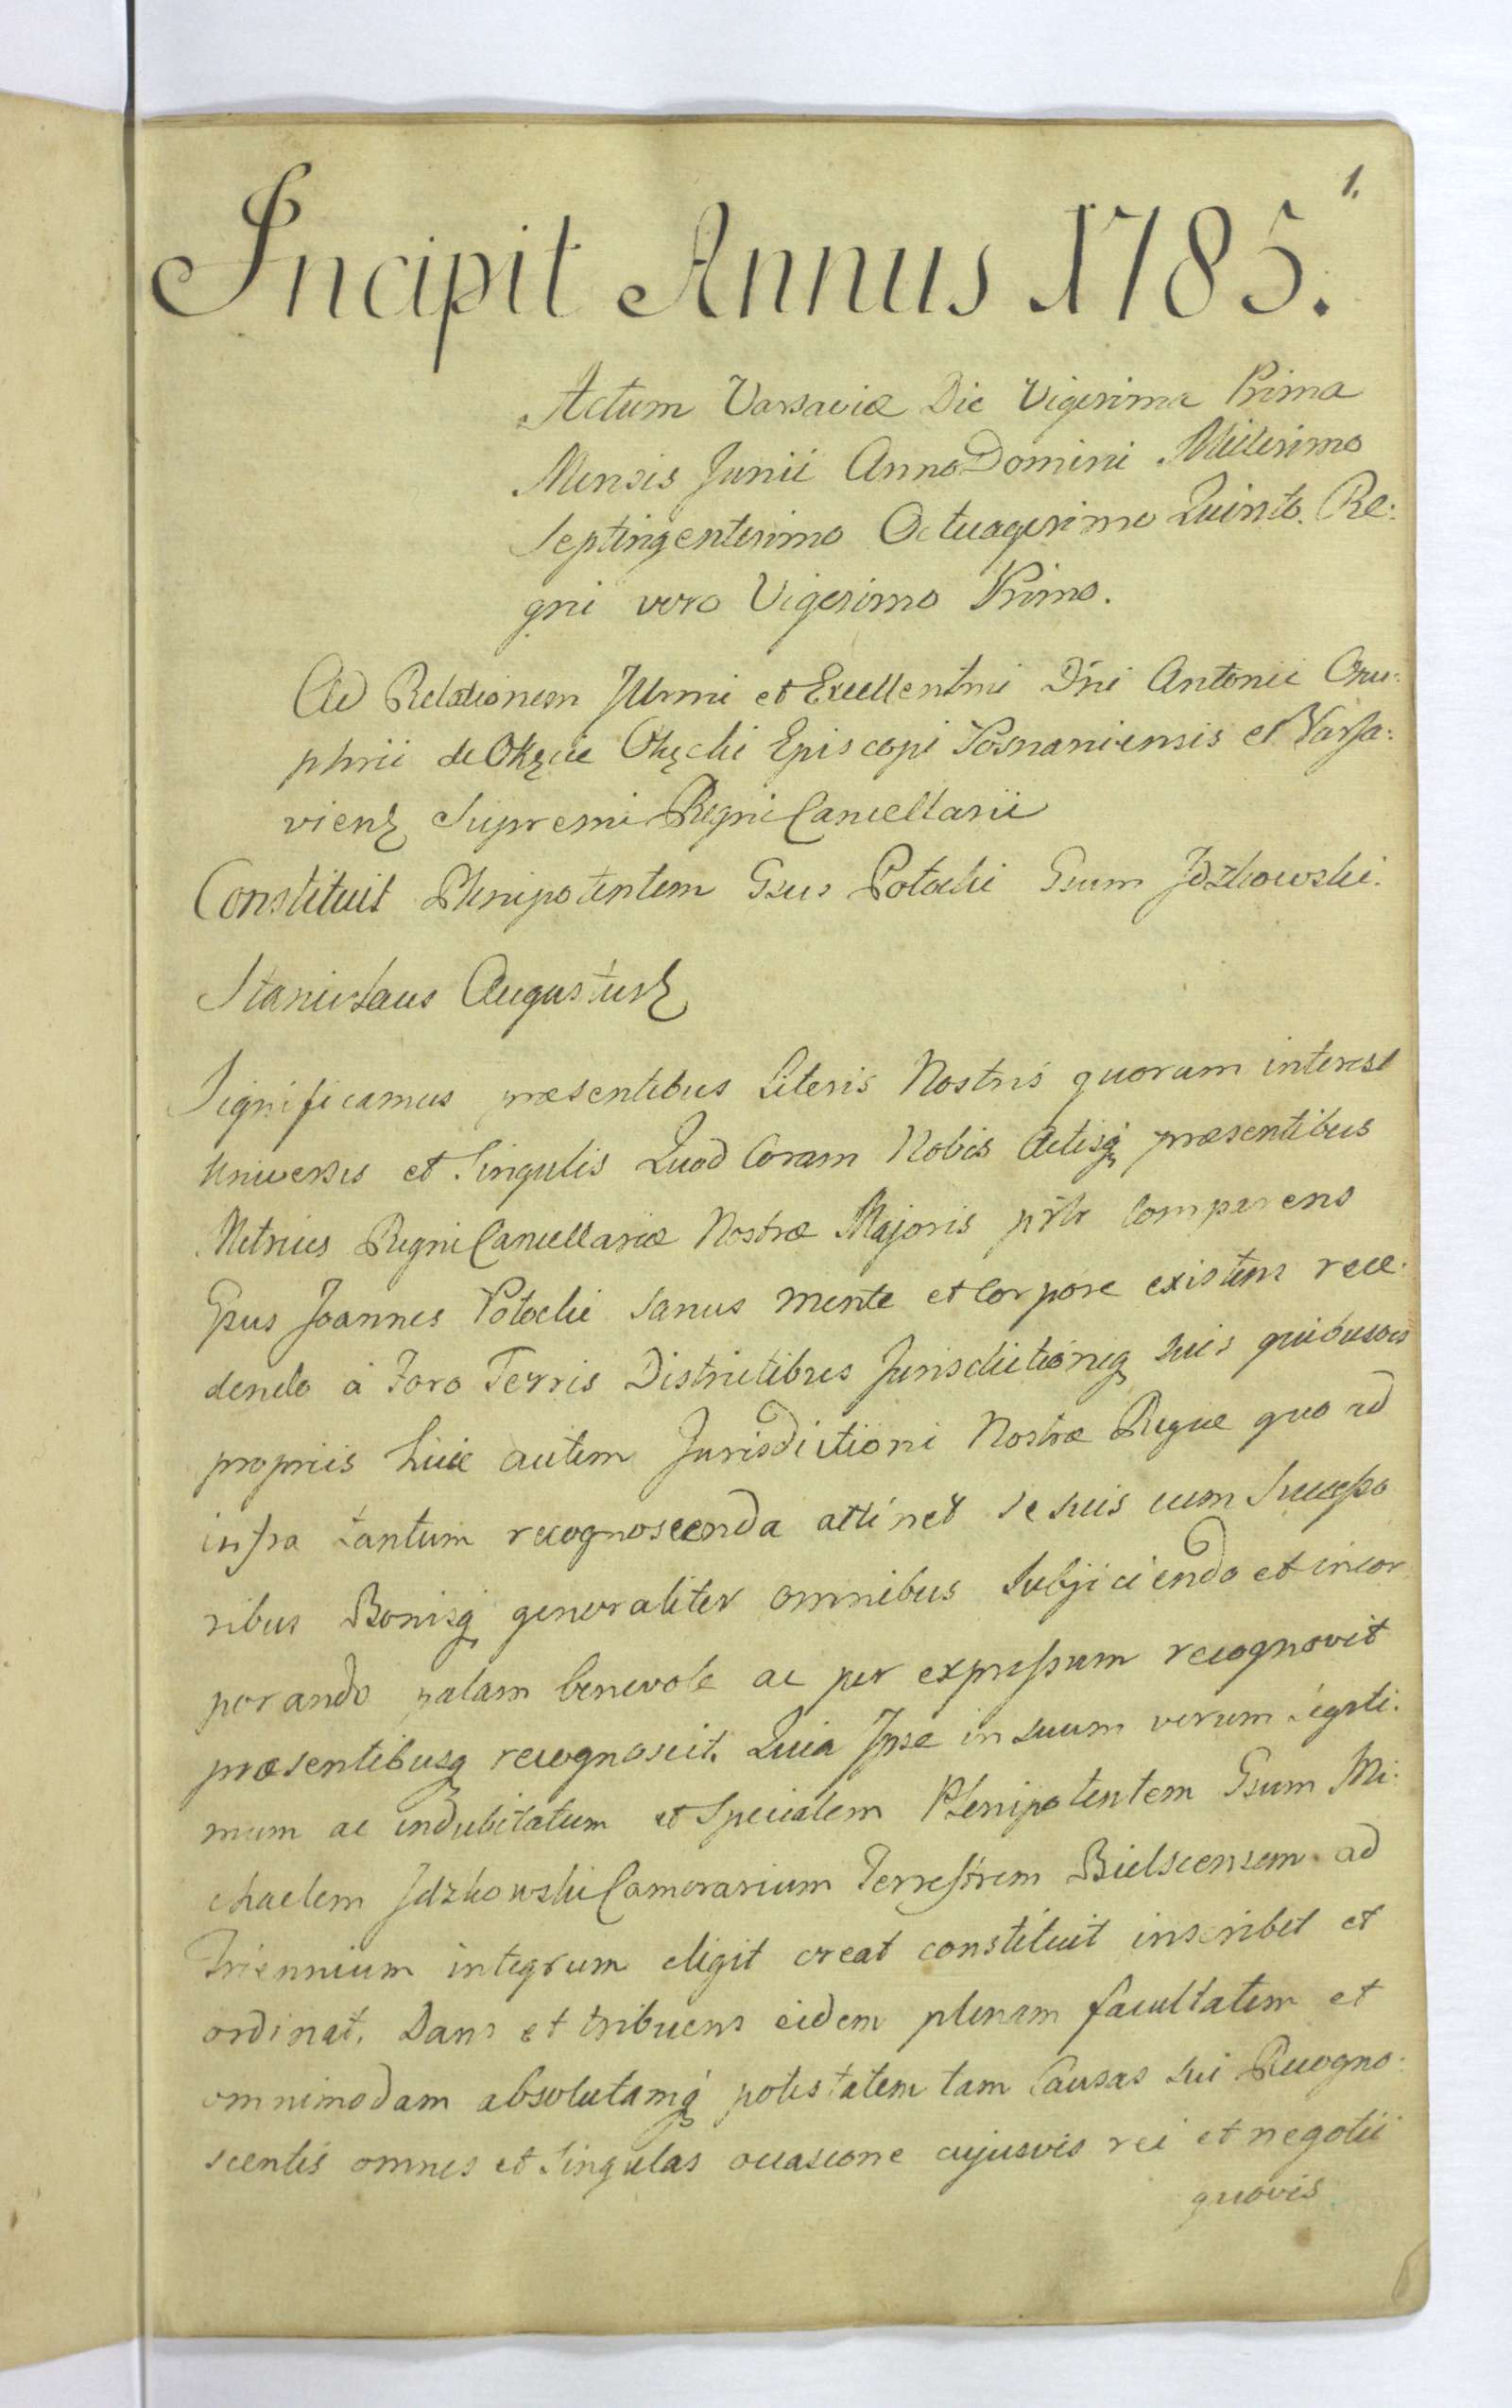 1.
Incipit Annus 1785.
Actum Varsaviæ Die Vigesima Prima
Mensis Junii Anno Domini Millesimo
Septingentesimo Octuagesimo Quinto. Re:
gni vero Vigesimo Primo.
Ad Relationem Illmi et Excellentmi Dni Antonii Onu:
phrii de Okęcie Okęcki Episcopi Posnaniensis et Varsa:
viens Supremi Regni Cancellarii
Constituit Plenipotentem Gsus Potocki Gsum Idzkowski.
Stanislaus Augustus
Significamus præsentibus Literis Nostris quorum interest
Universis et Singulis Quod Coram Nobis Actisq præsentibus
Metrices Regni Cancellariæ Nostræ Majoris pslr comparens
Gsus Joannes Potocki sanus mente et Corpore existens rece:
dendo à Foro Terris Districtibus Jurisdictioniq suis quibusvis
propriis huic autem Jurisdictioni Nostræ Regiæ quo ad
infra tantum recognoscenda attinet se suis cum Successo
ribus Bonisq generaliter omnibus subjiciendo et incor
porando palam benevole ac per expressum recognovit
præsentibusq recognoscit. Quia Ipse in suum verum legiti:
mum ac indubitatum et Specialem Plenipotentem Gsum Mi:
chaelem Idzkowski Camerarium Terrestrem Bielscensem ad
Triennium integrum eligit creat constituit inscribet et
ordinat. Dans et tribuens eidem plenam facultatem et
omnimodam absolutamq potestatem tam Causas sui Recogno:
scentis omnes et Singulas occasione cujusvis rei et negotii
quovis